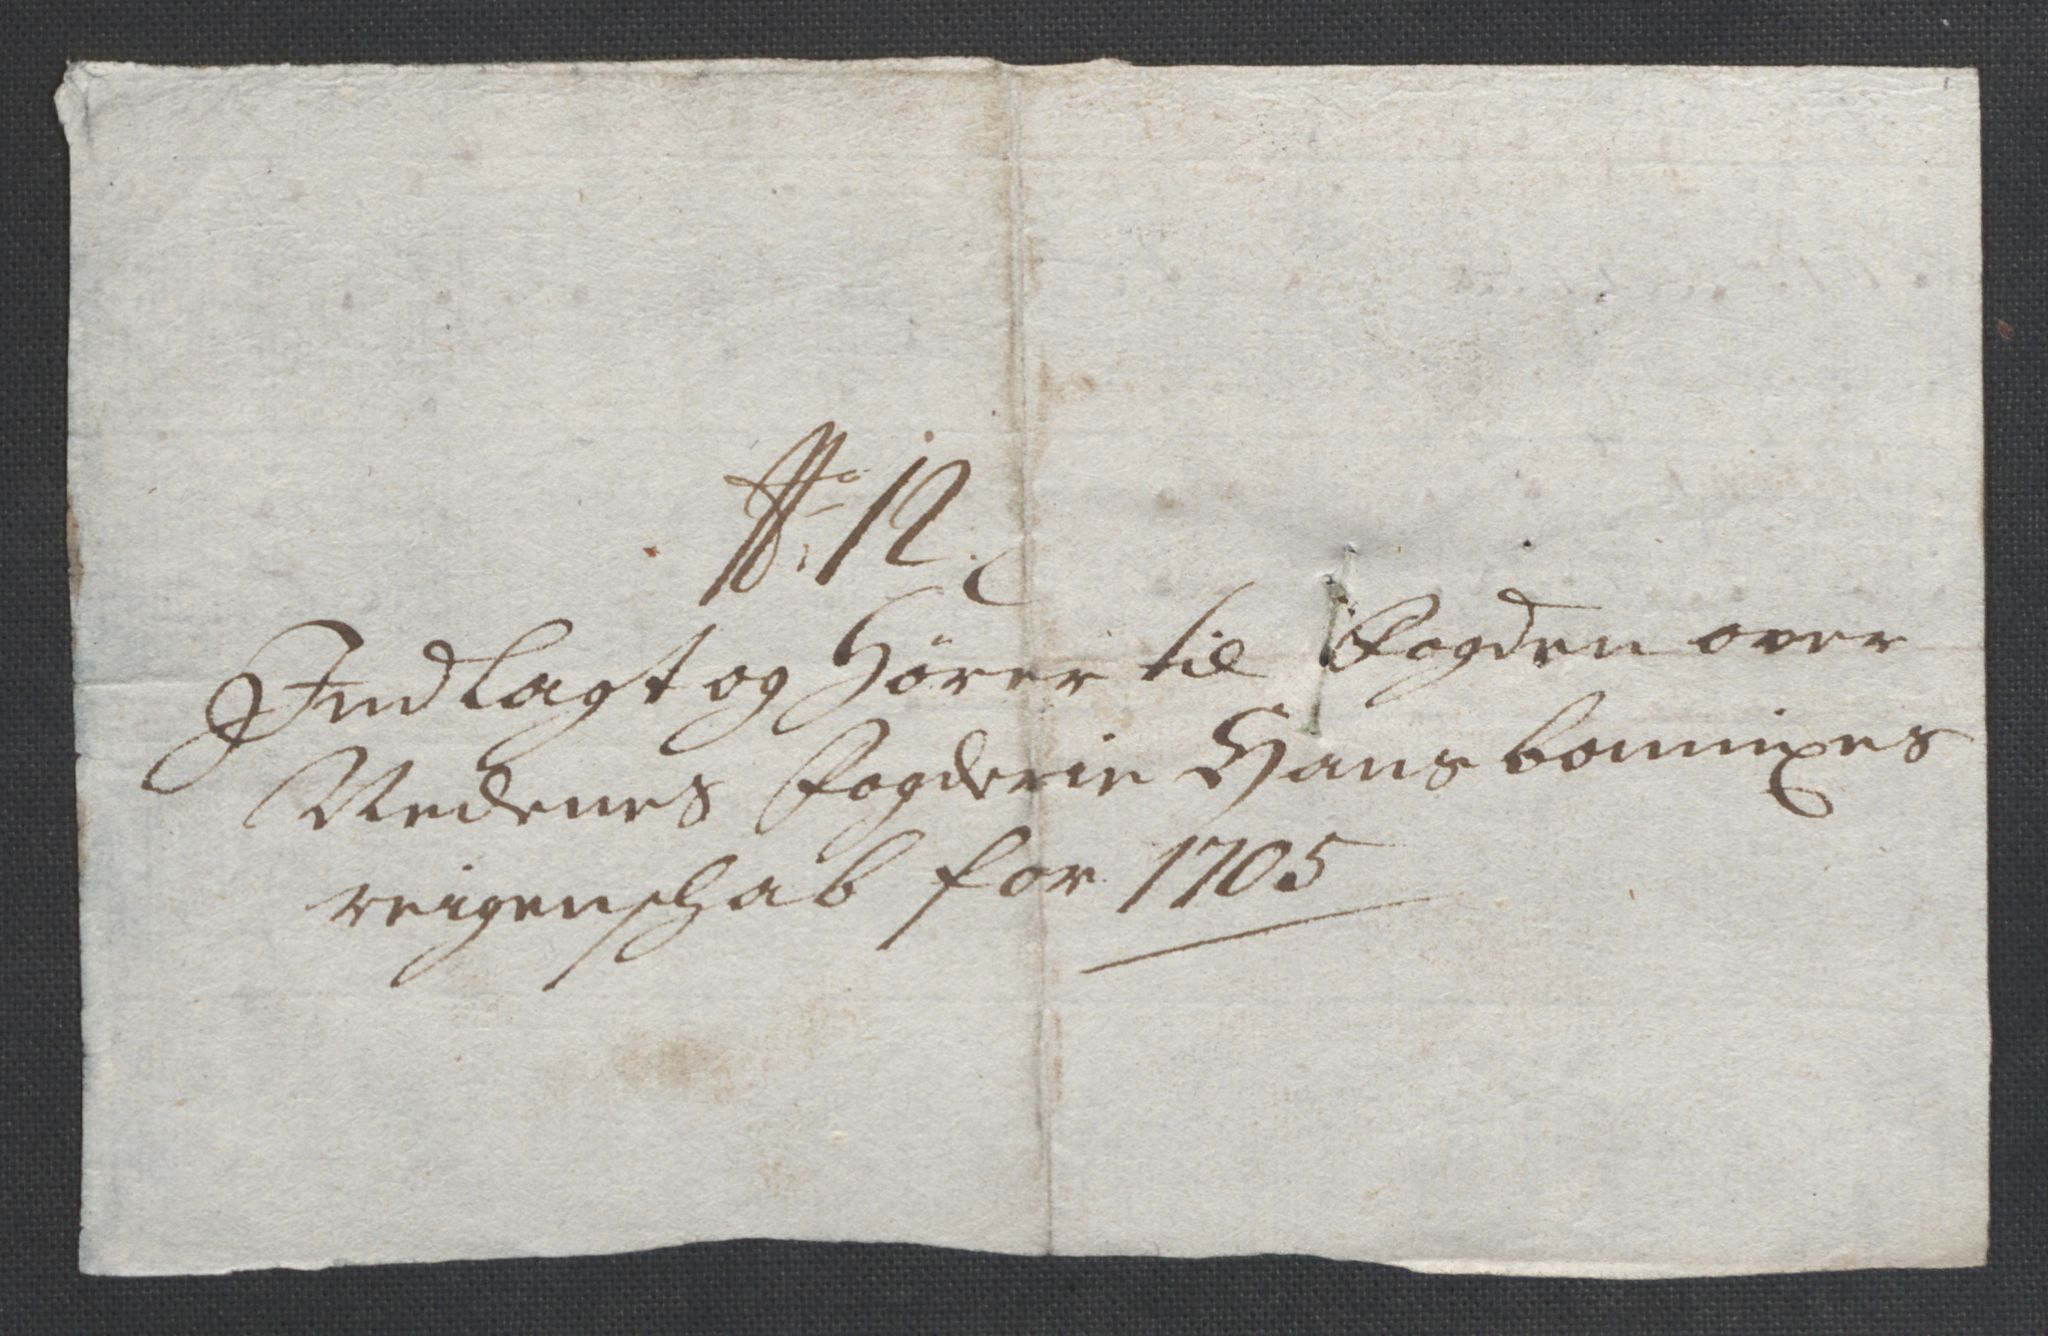 No: 12.
Indlagt og Hører til Fogden over
Nedenes Fogderie Hans bonnixes
reigenschab for 1705